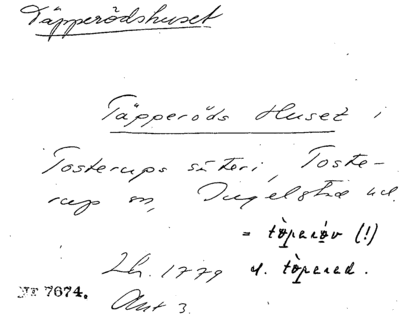 Täpperödshuset
Täpperöds Huset i
Tosterups säteri, Toste-
rup sn, Ingelstad hd.
= tὸperöv (!)
Lh. 1779 el. tὸpered.
NE 7674.
Akt 3.